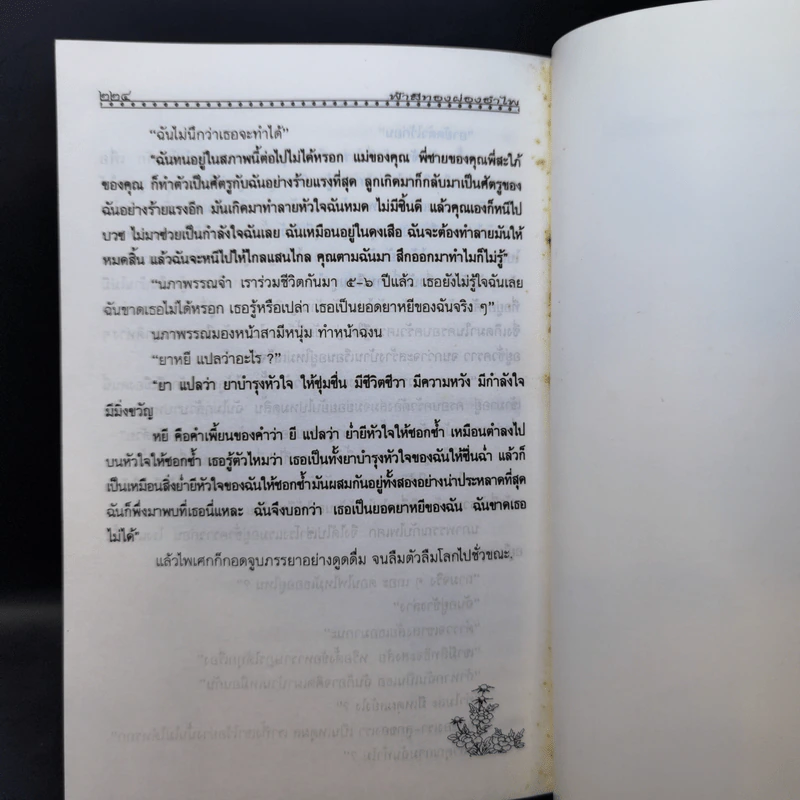 ๒๒๔ ฟ้าสีทองผ่องอำไพ
“ฉันไม่นึกว่าเธอจะทำได้”
“ฉันทนอยู่ในสภาพนี้ต่อไปไม่ได้หรอก แม่ของคุณ พี่ชายของคุณพี่สะใภ้
ของคุณ ก็ทำตัวเป็นศัตรูกับฉันอย่างร้ายแรงที่สุด ลูกเกิดมาก็กลับมาเป็นศัตรูของ
ฉันอย่างร้ายแรงอีก มันเกิดมาทำลายหัวใจฉันหมด ไม่มีชิ้นดี แล้วคุณเองก็หนีไป
บวช ไม่มาช่วยเป็นกำลังใจฉันเลย ฉันเหมือนอยู่ในดงเสือ ฉันจะต้องทำลายมันให้
หมดสิ้น แล้วฉันจะหนีไปให้ไกลแสนไกล คุณตามฉันมา สึกออกมาทำไมก็ไม่รู้”
“นภาพรรณจ๋า เราร่วมชีวิตกันมา ๕-๖ ปีแล้ว เธอยังไม่รู้ใจฉันเลย
ฉันขาดเธอไม่ได้หรอก เธอรู้หรือเปล่า เธอเป็นยอดยาหยีของฉันจริง ๆ”
นภาพรรณมองหน้าสามีหนุ่ม ทำหน้าฉงน
“ยาหยี แปลว่าอะไร ?”
“ยา แปลว่า ยาบำรุงหัวใจ ให้ชุ่มชื่น มีชีวิตชีวา มีความหวัง มีกำลังใจ
มีมิ่งขวัญ
หยี คือคำเพี้ยนของคำว่า ยี แปลว่า ย่ำยีหัวใจให้ชอกช้ำ เหมือนตำลงไป
บนหัวใจให้ชอกช้ำ เธอรู้ตัวไหมว่า เธอเป็นทั้งยาบำรุงหัวใจของฉันให้ชื่นฉ่ำ แล้วก็
เป็นเหมือนสิ่งย่ำยีหัวใจของฉันให้ชอกช้ำมันผสมกันอยู่ทั้งสองอย่างน่าประหลาดที่สุด
ฉันก็พึ่งมาพบที่เธอนี่แหละ ฉันจึงบอกว่า เธอเป็นยอดยาหยีของฉัน ฉันขาดเธอ
ไม่ได้”
แล้วไพเศกก็กอดจูบภรรยาอย่างดูดดื่ม จนลืมตัวลืมโลกไปชั่วขณะ.